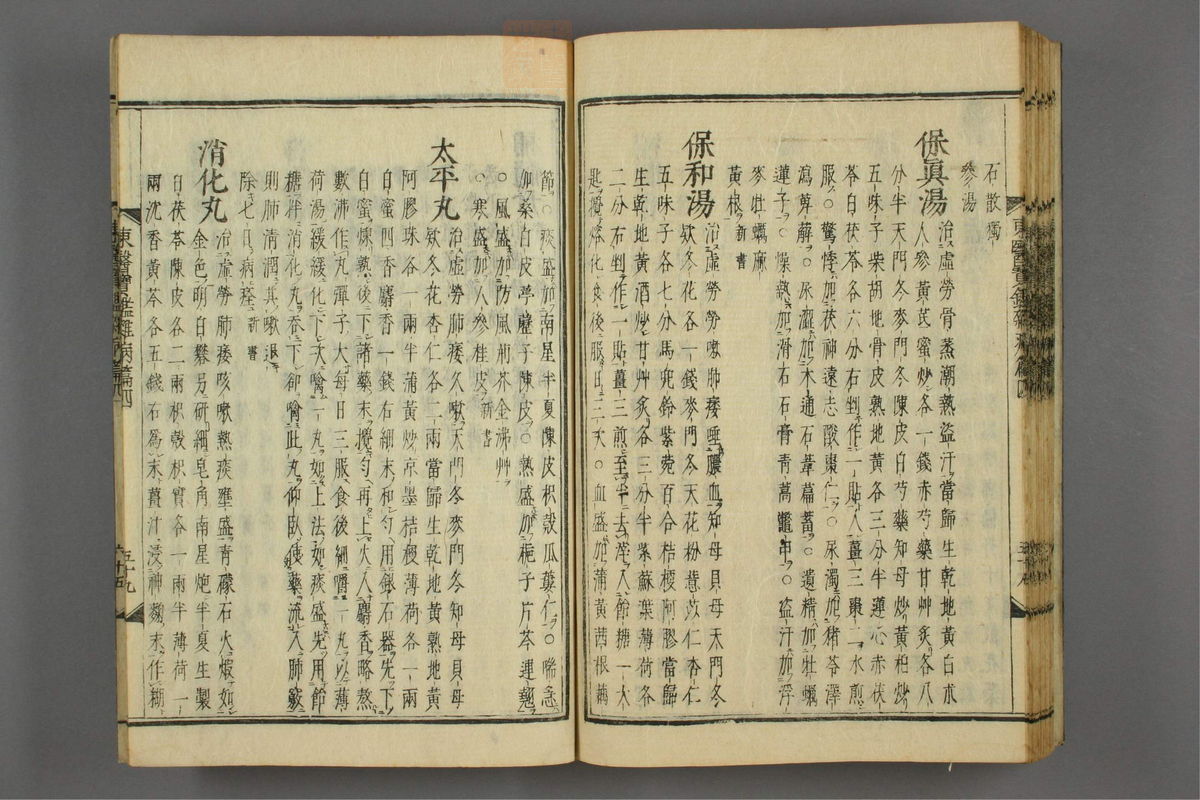 石散獨
參湯
保眞湯 治虛勞骨蒸潮熱盜汗當歸生乾地黃白朮
人參黃芪蜜炒各一錢赤芍藥甘艸炙各八
分半天門冬麥門冬陳皮白芍藥知母炒黃柏炒
五味子柴胡地骨皮熟地黃各三分半蓮心赤茯
苓白茯苓各六分右剉作一貼入薑三棗二水煎
服○驚悸加茯神遠志酸棗仁○尿濁加猪苓澤
瀉萆薢○尿澀加木通石葦萹蓄○遺精加牡蠣
蓮子○燥熱加滑石石膏青蒿鱉甲○盜汗加浮
麥牡蠣麻
黃根新書
保和湯 治虛勞勞嗽肺痿唾膿血知母貝母天門冬
欵冬花各一錢麥門冬天花粉薏苡仁杏仁
五味子各七分馬兜鈴紫菀百合桔梗阿膠當歸
生乾地黃酒炒甘艸炙各三分半紫蘇葉薄荷各
二分右剉作一貼薑三煎至半去滓入飴糖一大
匙攪熔化食後服日二次○血盛加蒲黃茜根藕
節○痰盛加南星半夏陳皮枳殼瓜蔞仁○喘急
加桑白皮葶藶子陳皮○熱盛加梔子片芩連翹
○風盛加防風荊芥金沸艸
○寒盛加人參桂皮新書
太平丸 治虛勞肺痿久嗽天門冬麥門冬知母貝母
欵冬花杏仁各二兩當歸生乾地黃熟地黃
阿膠珠各一兩半蒲黃炒京墨桔梗薄荷各一兩
白蜜四香麝香一錢右細末和勻用銀石器先下
白蜜煉熟後下諸藥末攪勻再上火入麝香略熬
數沸作丸彈子大每日三服食後細嚼一丸以薄
荷湯緩緩化下次噙一丸如上法如痰盛先用飴
糖拌消化丸吞下卻噙此丸仰臥使藥流入肺竅
則肺清潤其嗽退
除七日病痊新書
消化丸 治虛勞肺痿咳嗽熱痰壅盛青礞石火煅如
金色明白礬另研細皂角南星炮半夏生製
白茯苓陳皮各二兩枳殼枳實各一兩半薄荷一
兩沈香黃芩各五錢右爲末薑汁浸神麴末作糊
東醫寶鑑雜病篇四
五十九